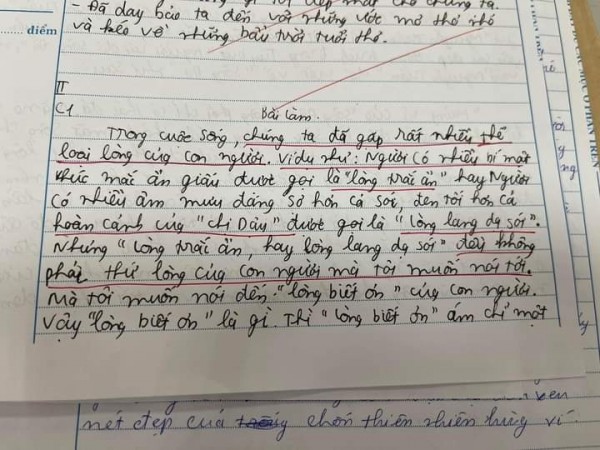 - Đã dạy bảo ta đến với những ước mơ thơ
và kéo về những bầu trời tuổi thơ.
điểm
II
C1
Bài làm.
Trong cuộc sống, chúng ta đã gặp rất nhiều thể
loại lòng của con người. Ví dụ như: Người có nhiều bí mật
khúc mắc ẩn giấu được gọi là "lòng trắc ẩn" hay Người
có nhiều âm mưu đáng sợ hơn cả sói, đen tối hơn cả
hoàn cảnh của "chị Dậu" được gọi là "lòng lang dạ sói".
Nhưng "lòng trắc ẩn, hay lòng lang dạ sói" đây không
phải thứ lòng của con người mà tôi muốn nói tới.
Mà tôi muốn nói đến "lòng biết ơn" của con người.
Vậy "lòng biết ơn" là gì. Thì "lòng biết ơn" ám chỉ một
nét đẹp của chốn thiên nhiên hùng vĩ